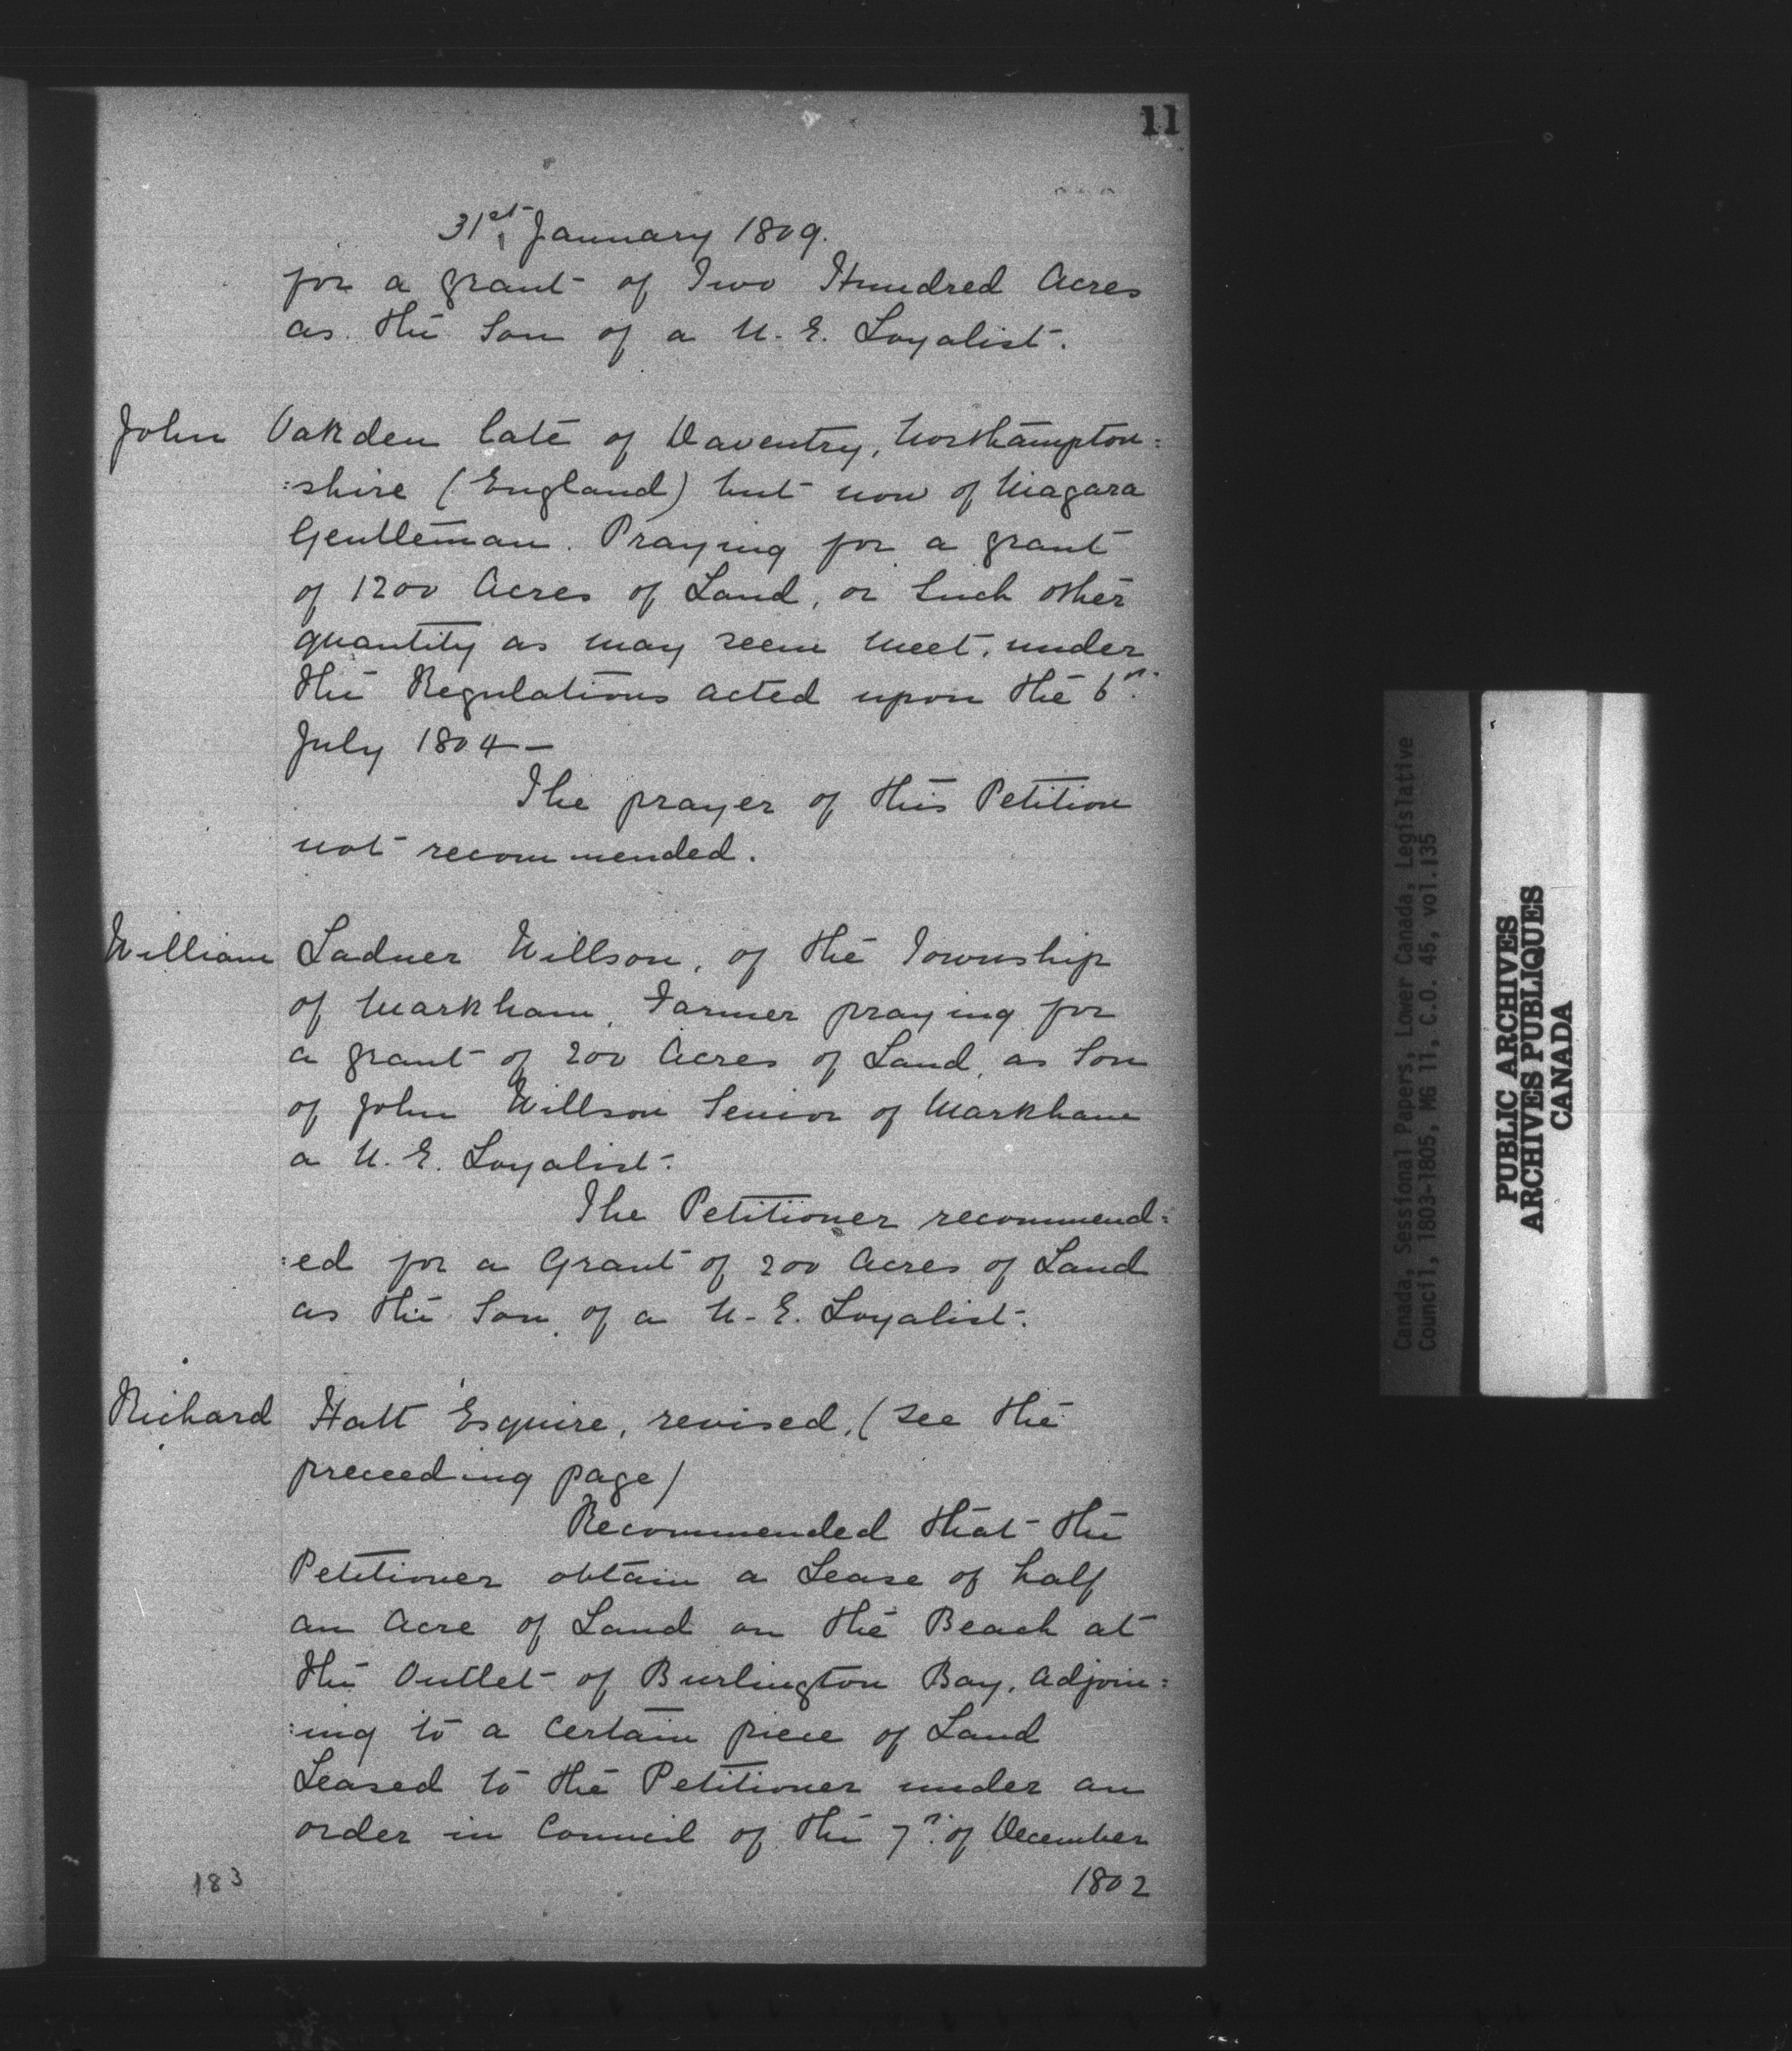 11
31st January 1809.
for a grant of Two Hundred Acres
as the Son of a U. E. Loyalist.
John Oakden late of Daventry, Northampton:
:shire (England) but now of Niagara
Gentleman. Praying for a grant
of 1200 Acres of Land, or Such other
quantity as may seem meet, under
the Regulations acted upon the 6th
July 1804—
The prayer of this Petition
not recommended.
William Ladner Willson, of the Township
of Markham, Farmer praying for
a grant of 200 Acres of Land, as Son
of John Willson Senior of Markham
a U. E. Loyalist.
The Petitioner recommend:
:ed for a Grant of 200 Acres of Land
as the Son of a U. E. Loyalist.
Richard Hatt Esquire, revised, (see the
preceeding page)
Recommended that the
Petitioner obtain a Lease of half
an Acre of Land on the Beach at
the Outlet of Burlington Bay, adjoin:
:ing to a Certain piece of Land
Leased to the Petitioner under an
order in Council of the 7th of December
183
1802
Canada, Sessional Papers, Lower Canada, Legislative
Council, 1803-1805, MG 11, C.O. 45, vol.135
PUBLIC ARCHIVES
ARCHIVES PUBLIQUES
CANADA